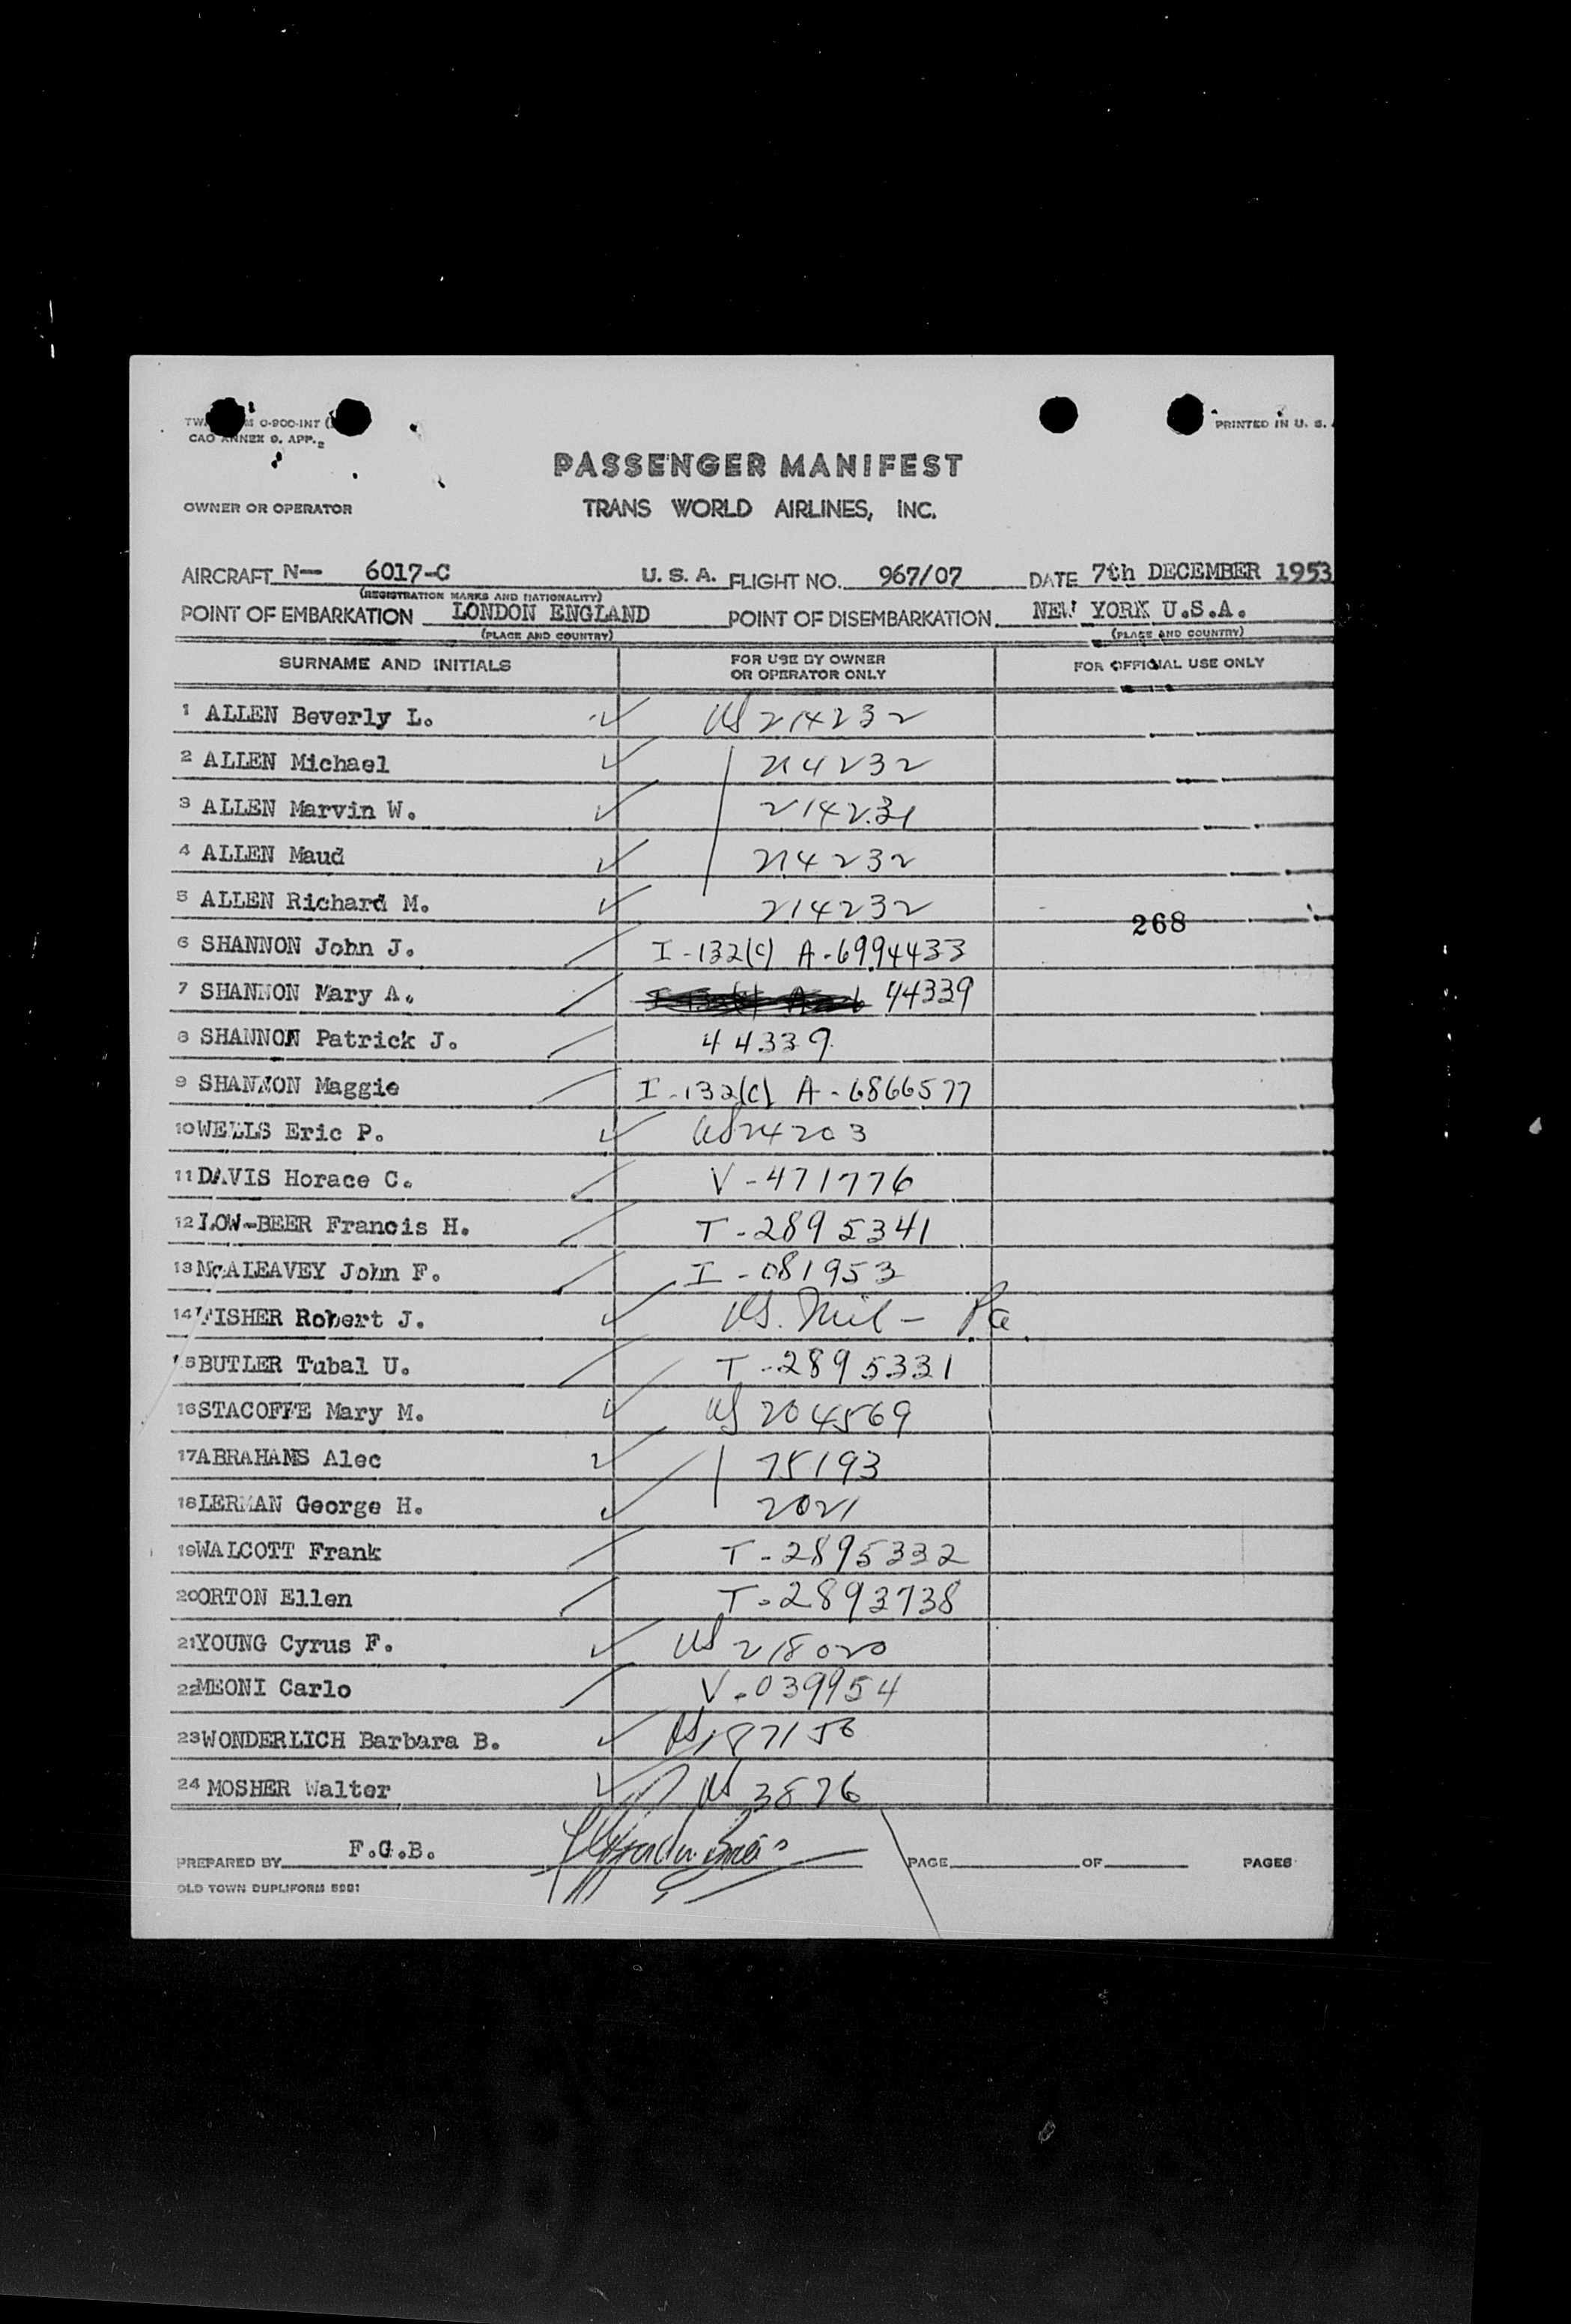 O-900-INT
CAO ANNEX 9. APP. 2
PRINTED IN U. S.
PASSENGER MANIFEST
OWNER OR OPERATOR TRANS WORLD AIRLINES, INC.
AIRCRAFT N— 6017-C U. S. A. FLIGHT NO. 967/07 DATE 7th DECEMBER 1953
(REGISTRATION MARKS AND NATIONALITY)
POINT OF EMBARKATION LONDON ENGLAND POINT OF DISEMBARKATION NEW YORK U.S.A.
(PLACE AND COUNTRY) (PLACE AND COUNTRY)
SURNAME AND INITIALS FOR USE BY OWNER OR OPERATOR ONLY FOR OFFICIAL USE ONLY
1 ALLEN Beverly L. US 214232
2 ALLEN Michael 214232
3 ALLEN Marvin W. 214231
4 ALLEN Maud 214232
5 ALLEN Richard M. 214232
268
6 SHANNON John J. I-132(c) A-6994433
7 SHANNON Mary A. 44339
8 SHANNON Patrick J. 44339
9 SHANNON Maggie I-132(c) A-6866577
10 WELLS Eric P. US 24203
11 DAVIS Horace C. V-471776
12 LOW-BEER Francis H. T-2895341
13 McALEAVEY John F. I-081953
14 FISHER Robert J. US. Mil -
15 BUTLER Tubal U. T-2895331
16 STACOFFE Mary M. US 204569
17 ABRAHAMS Alec 75193
18 LERMAN George H. 2021
19 WALCOTT Frank T-2895332
20 ORTON Ellen T-2893738
21 YOUNG Cyrus F. US 218020
22 MEONI Carlo V-039954
23 WONDERLICH Barbara B. US 187156
24 MOSHER Walter US 3876
PREPARED BY F.G.B. PAGE OF PAGES
OLD TOWN DUPLIFORM 5981